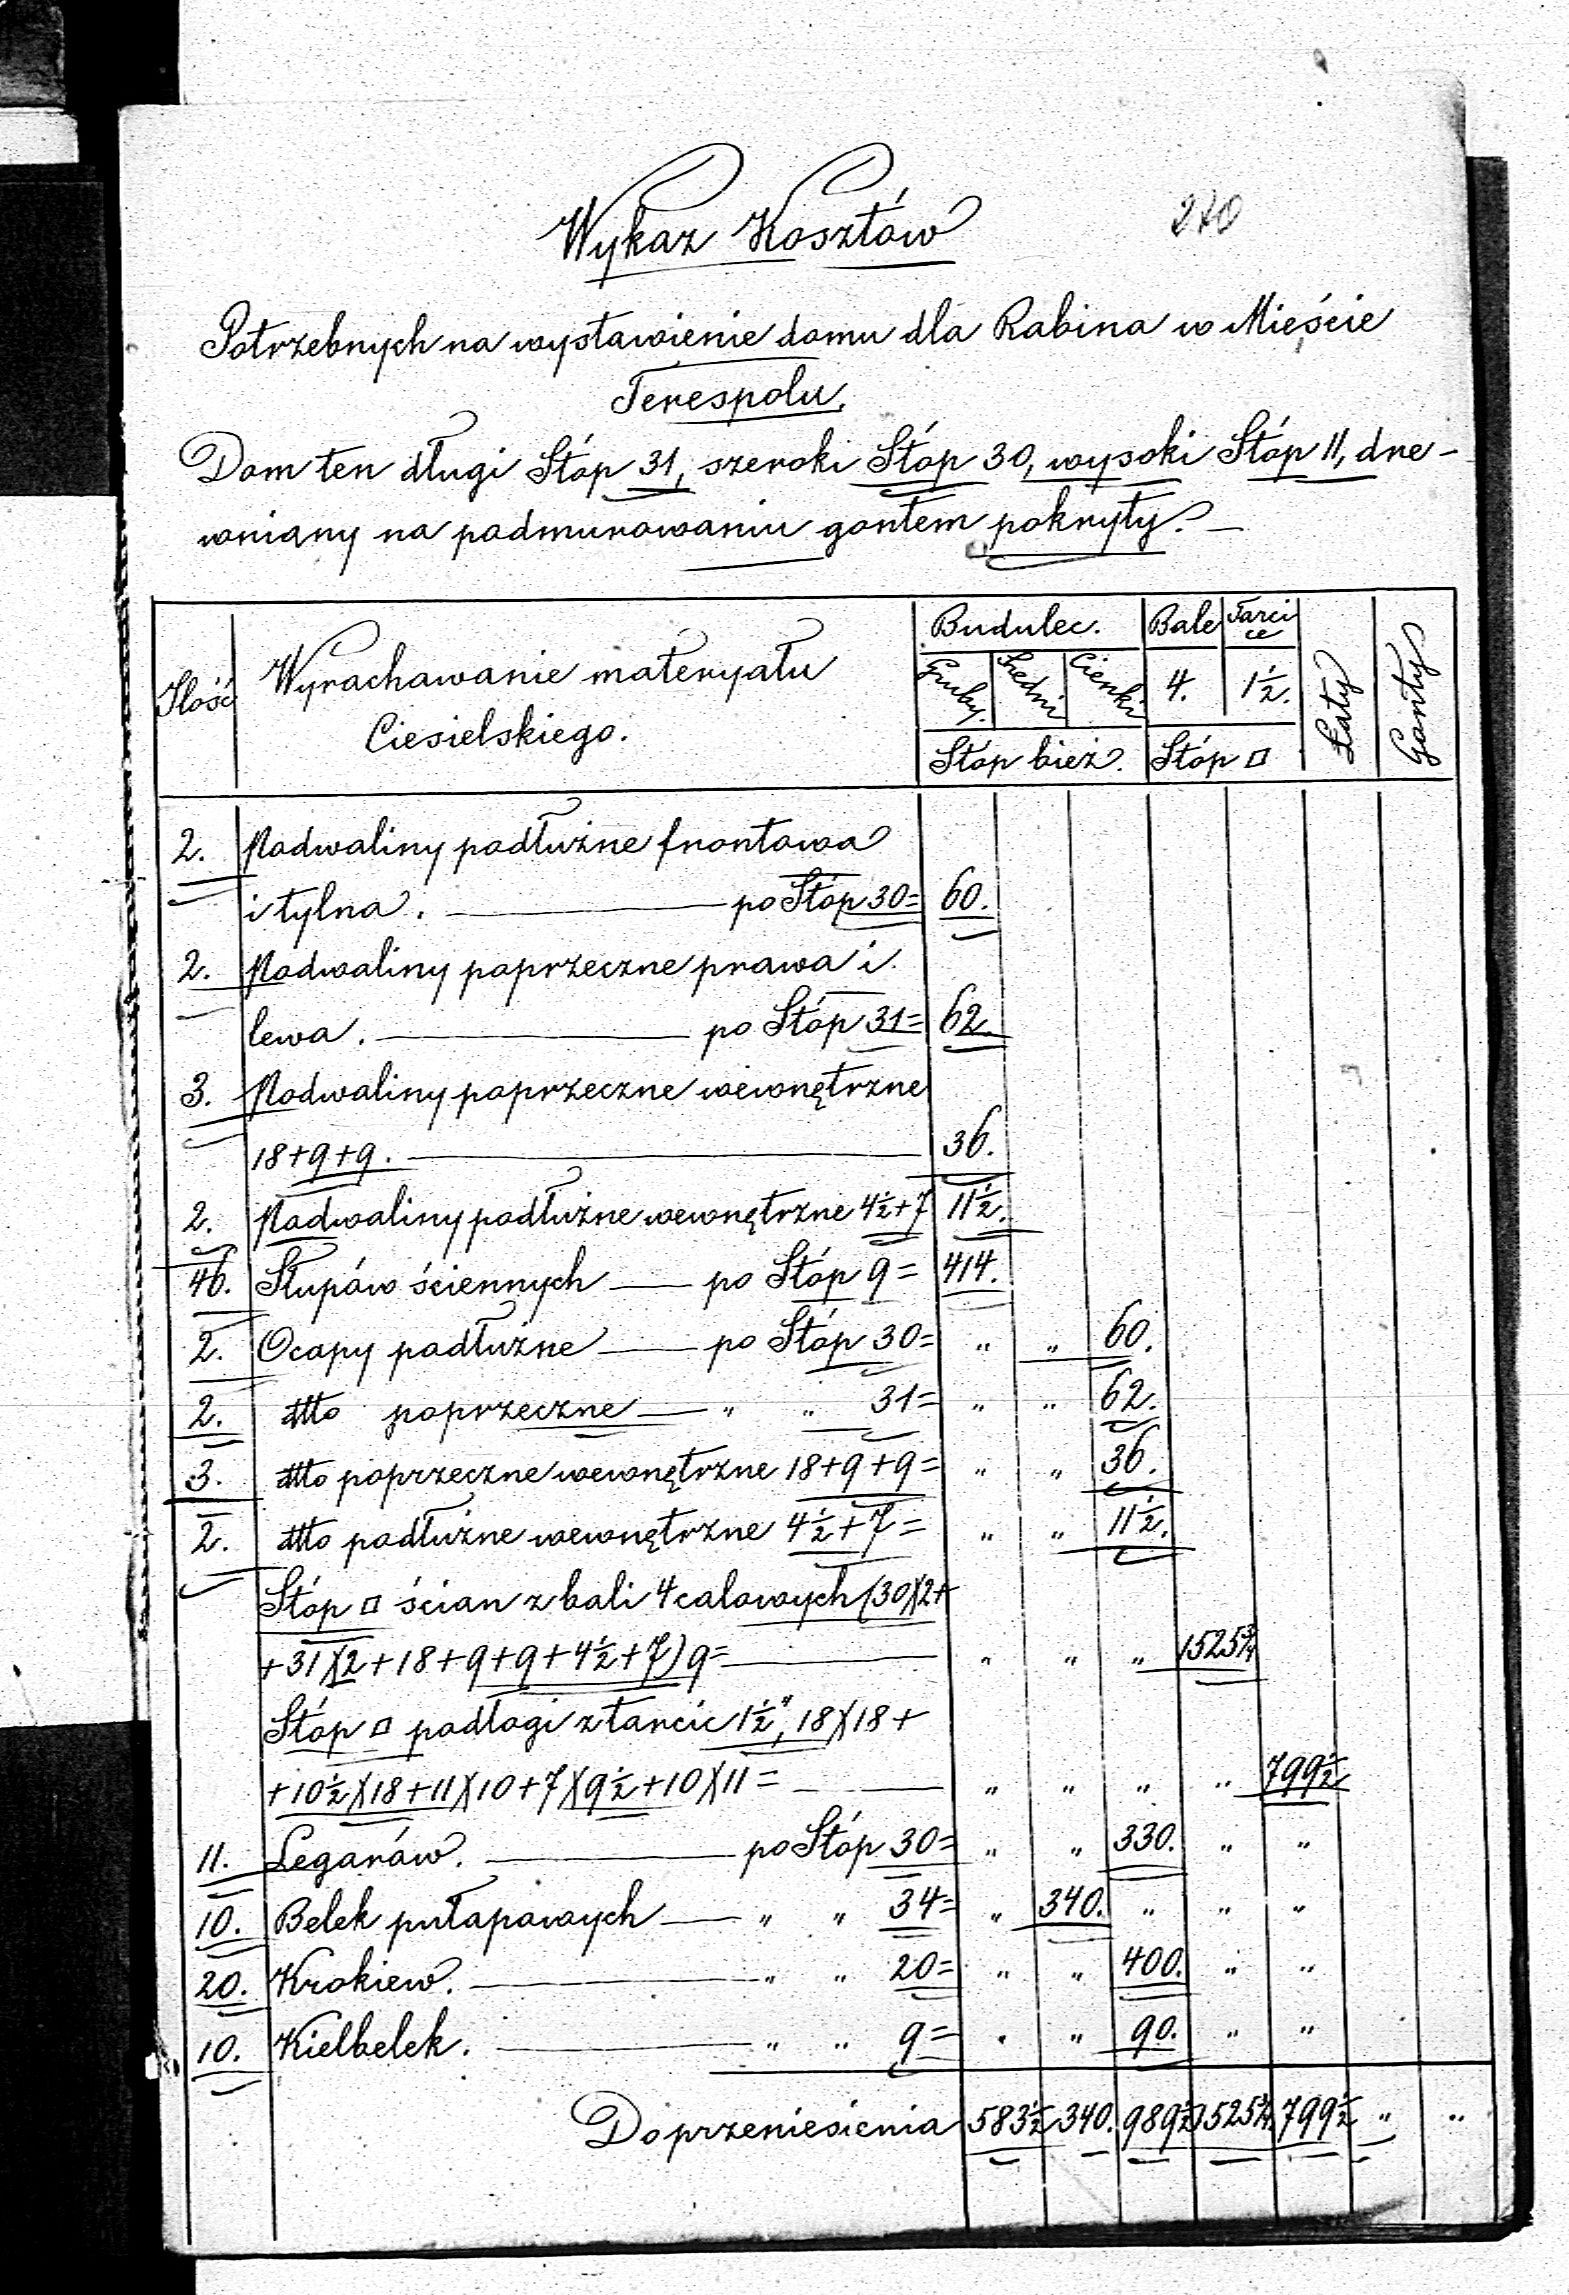 270
Wykaz Kosztów
Potrzebnych na wystawienie domu dla Rabina w Mieście
Terespolu,
Dom ten długi Stóp 31, szeroki Stóp 30, wysoki Stóp 11, dre-
wniany na podmurowaniu gontem pokryty. —
Ilość Wyrachowanie materyału Ciesielskiego. Budulec. Bale Tarcice Łaty Gonty
Gruby. Średni Cienki 4. 1½.
Stóp bież. Stóp □
2. Podwaliny podłużne frontowa
i tylna. — po Stóp 30= 60.
2. Podwaliny poprzeczne prawa i
lewa. — po Stóp 31= 62.
3. Podwaliny poprzeczne wewnętrzne
18+9+9. — 36.
2. Podwaliny podłużne wewnętrzne 4½+7 11½.
46. Słupów ściennych — po Stóp 9= 414.
2. Ocapy podłużne — po Stóp 30= " " 60.
2. dtto poprzeczne — " " 31= " " 62.
3. dtto poprzeczne wewnętrzne 18+9+9= " " 36.
2. dtto podłużne wewnętrzne 4½+7= " " 11½.
Stóp □ ścian z bali 4 calowych (30)(2+
+31)(2+18+9+9+4½+7)9= — " " " 1525¾
Stóp □ podłogi z tarcic 1½", 18)(18+
+10½)(18+11)(10+7)(9½+10)(11= — " " " " 799½
11. Legarów. — po Stóp 30= " " 330. " "
10. Belek pułapowych — " " 34= " 340. " " "
20. Krokiew. — " " 20= " " 400. " "
10. Kielbelek. — " " 9= " " 90. " "
Do przeniesienia 583½ 340. 989½ 1525¾ 799½ " "